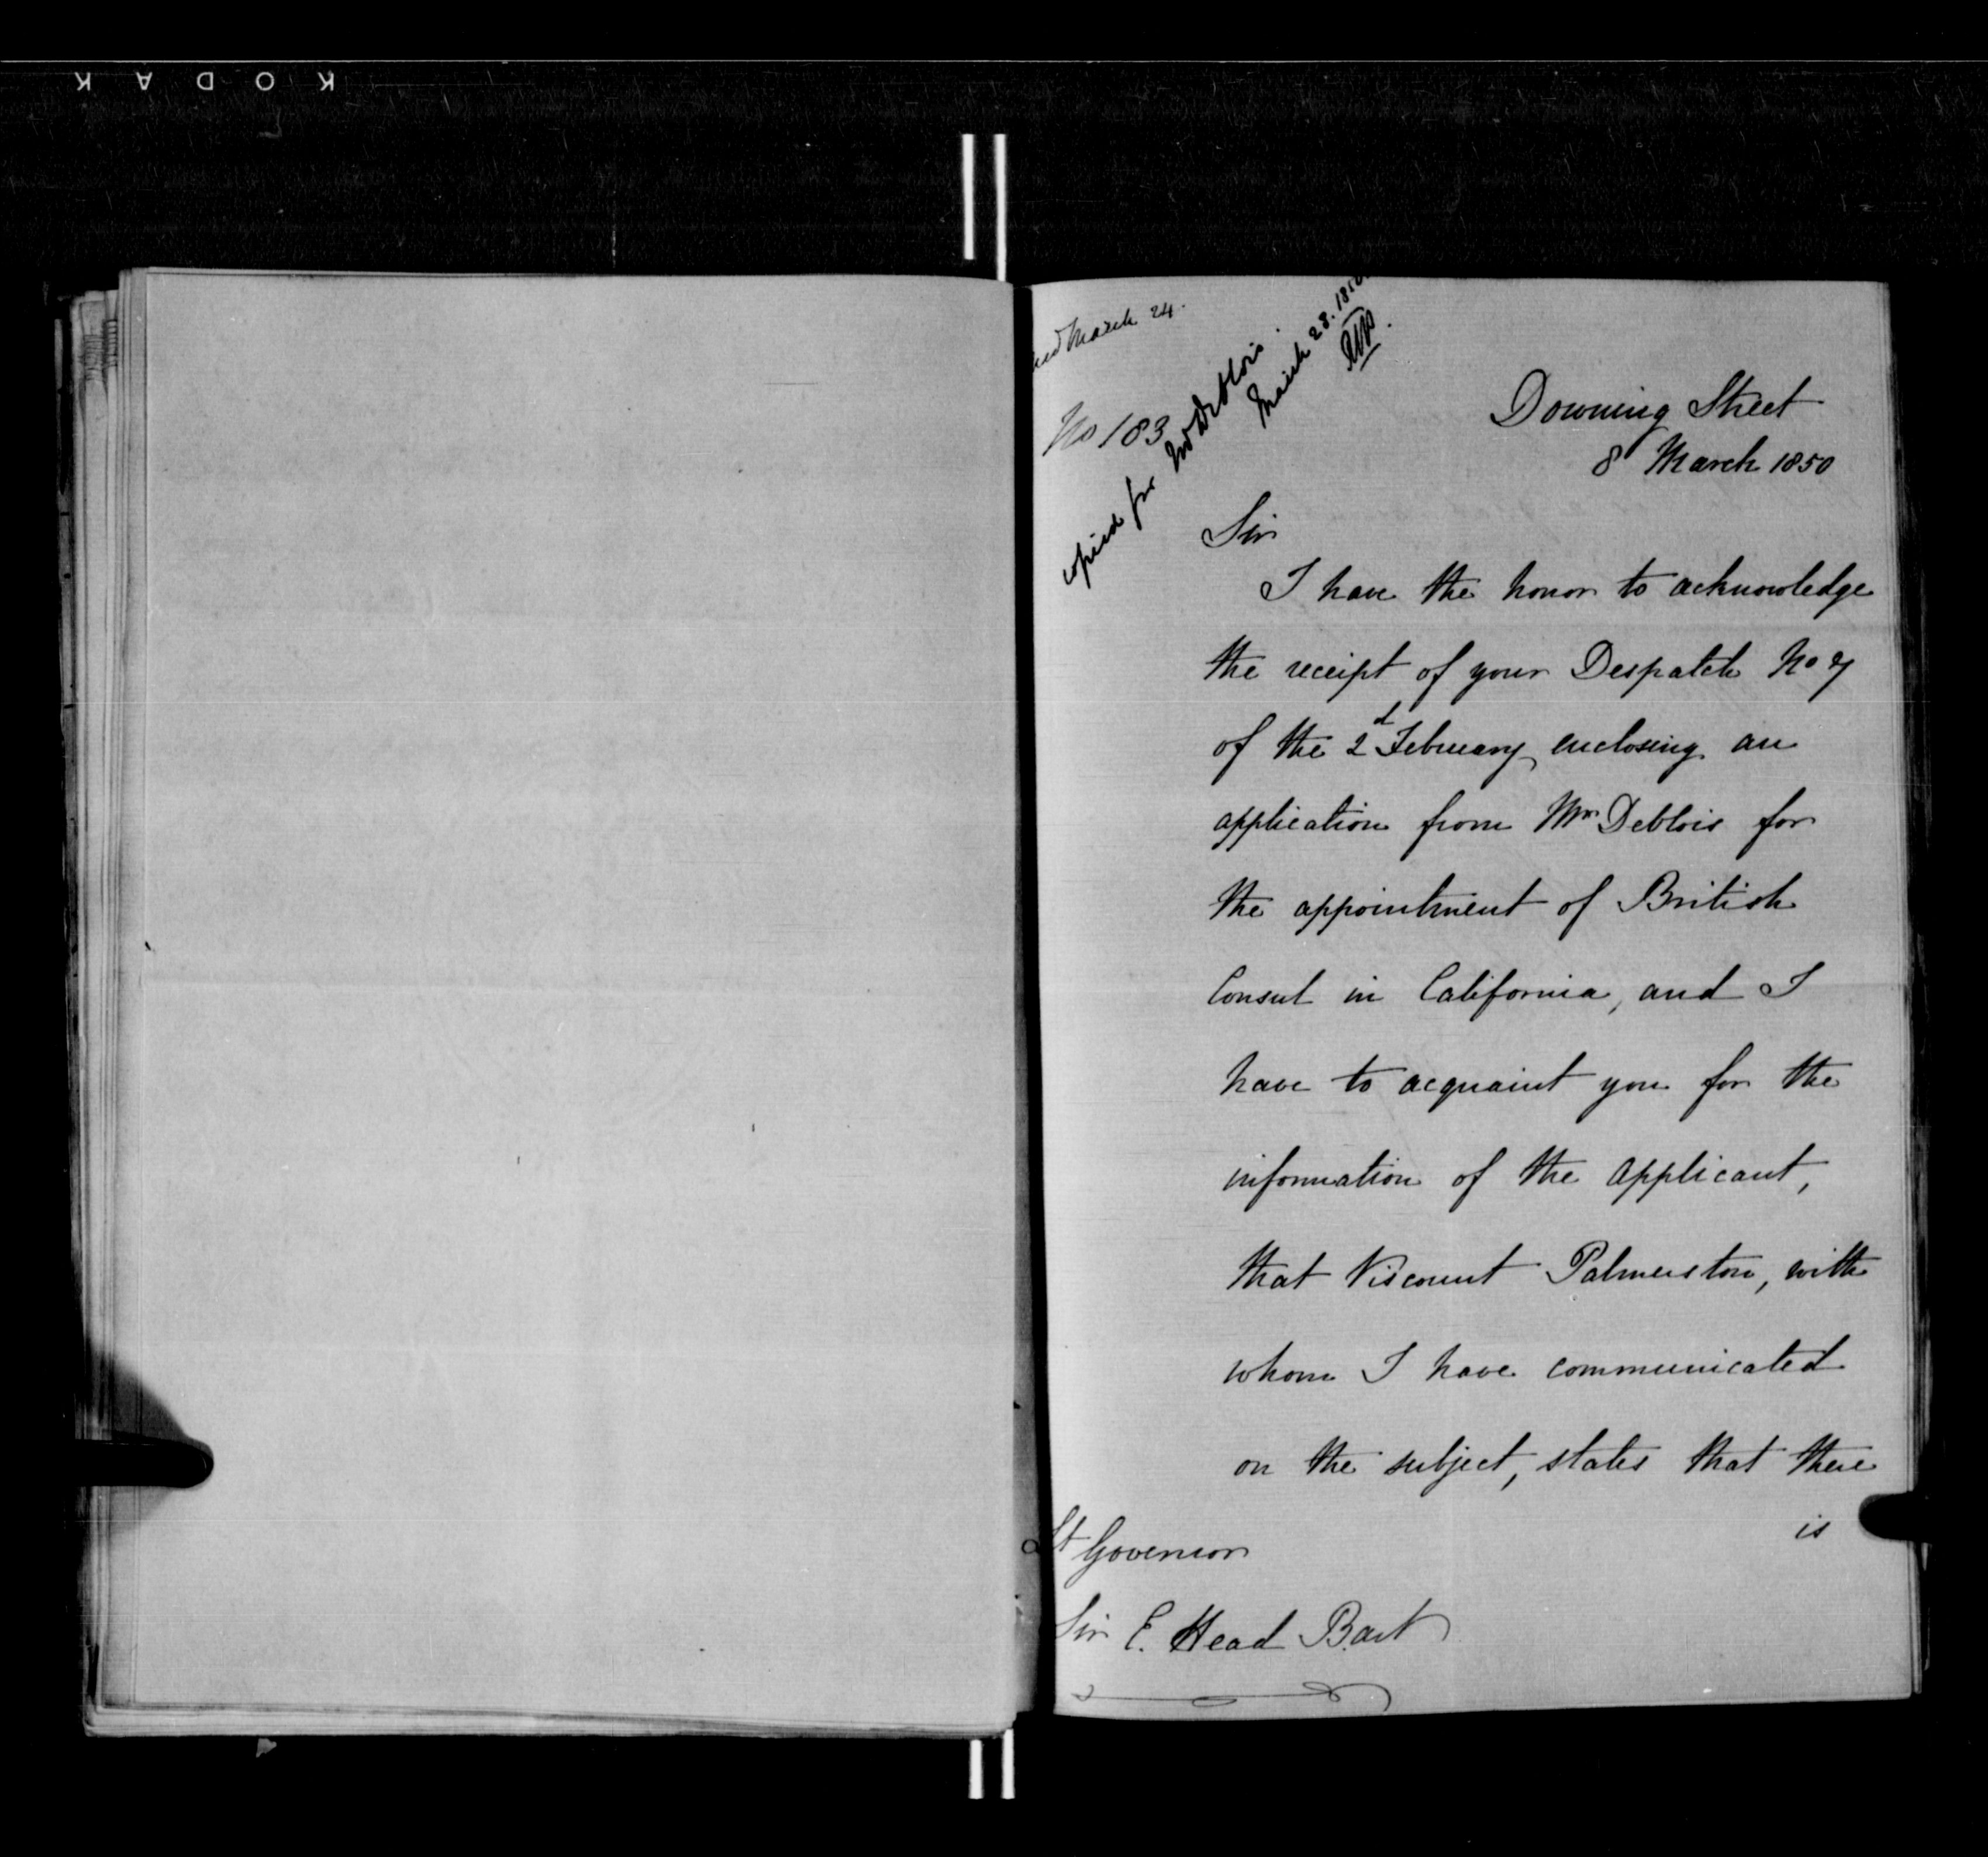 KODAK
March 24.
No 183
copied for Mr Deblois.
March 28. 1850
Downing Street
8 March 1850
Sir
I have the honor to acknowledge
the receipt of your Despatch No 7
of the 2d February enclosing an
application from Mr Deblois for
the appointment of British
Consul in California, and I
have to acquaint you for the
information of the applicant,
that Viscount Palmerston, with
whom I have communicated
on the subject, states that there
is
Lt Governor
Sir E. Head Bart